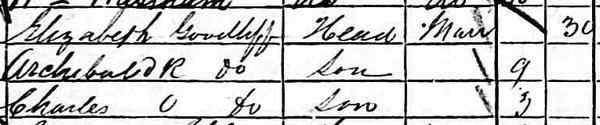 Elizabeth Goodliff Head Marr 30
Archebald R do Son 9
Charles O Do Son 3